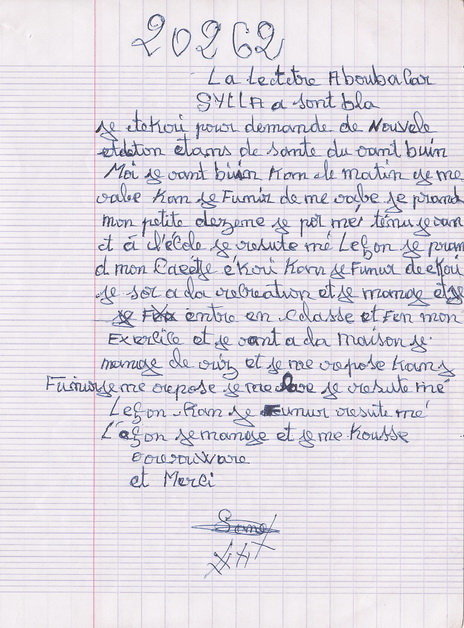 20262
La Lectitre Aboubacar
SYLLA a sont bla
je etekori pour demande de Nouvele
etdeton etams de sante du vant buin
Moi je vant buin Kam le matin je me
vabe Kam je Fumir de me vabe je prand
mon petite dezeme je por mé ténu je van
t à l'école je resute mé Leçon je pran
d mon Caeétje ékori Kam je Fumur de ekori
je sor a da recreation et je mange et je
entre en Classe et Fen mon
Exercice et je vant a da maison je
mange de riz et je me repose Kams
Fumur je me repose je me lave je resute mé
Leçon Kam je Fumur resute mé
Leçon je mange et je me Kousse
oorerouware
et Merci